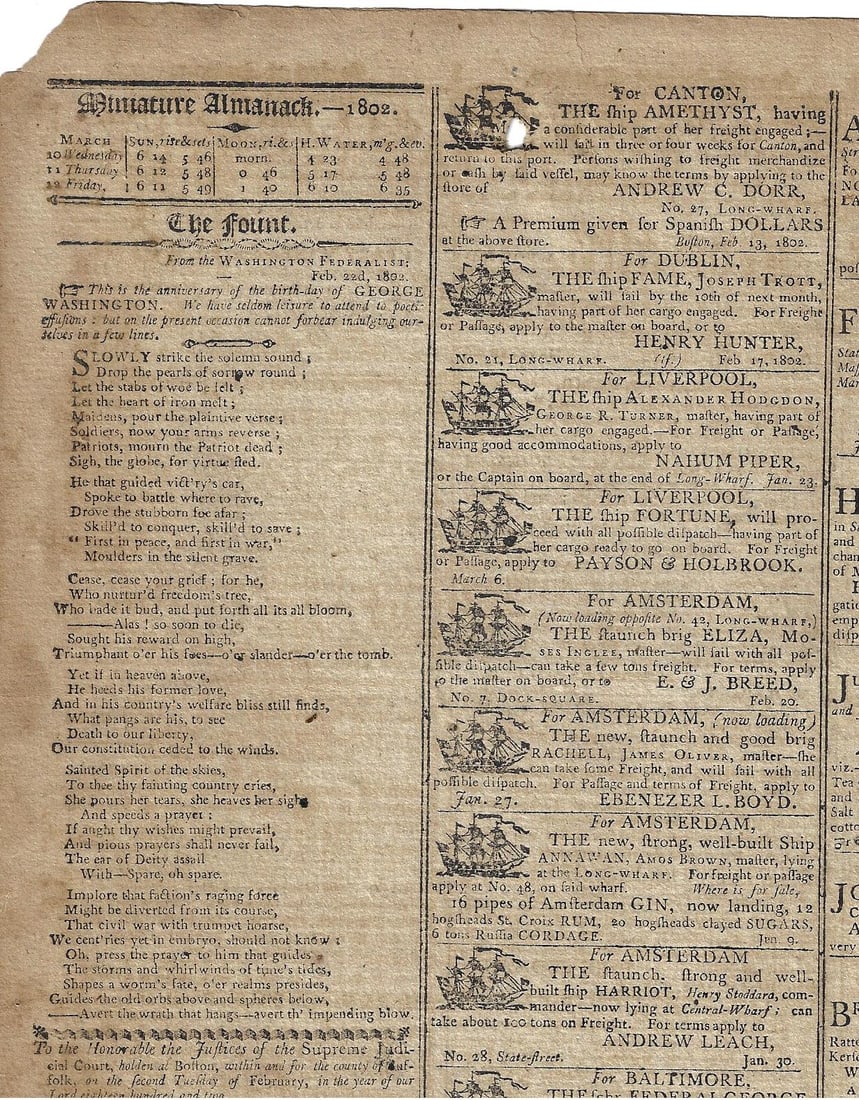 Miniature Almanack.—1802.
MARCH | SUN, rise & sets | MOON, ri. & s | H. WATER, m'g. & ev.
10 Wednesday | 6 14 5 46 | morn. | 4 23 4 48
11 Thursday | 6 12 5 48 | 0 46 | 5 17 5 48
12 Friday, | 6 11 5 49 | 1 40 | 6 10 6 35
The Fount.
From the WASHINGTON FEDERALIST:
Feb. 22d, 1802.
☞ This is the anniversary of the birth-day of GEORGE
WASHINGTON. We have seldom leisure to attend to poeti-
effusions: but on the present occasion cannot forbear indulging our-
selves in a few lines.
SLOWLY strike the solemn sound;
Drop the pearls of sorrow round;
Let the stabs of woe be felt;
Let the heart of iron melt;
Maidens, pour the plaintive verse;
Soldiers, now your arms reverse;
Patriots, mourn the Patriot dead;
Sigh, the globe, for virtue fled.
He that guided vict'ry's car,
Spoke to battle where to rave,
Drove the stubborn foe afar;
Skill'd to conquer, skill'd to save;
" First in peace, and first in war,"
Moulders in the silent grave.
Cease, cease your grief; for he,
Who nurtur'd freedom's tree,
Who bade it bud, and put forth all its all bloom,
——Alas! so soon to die,
Sought his reward on high,
Triumphant o'er his foes—o'er slander—o'er the tomb.
Yet if in heaven above,
He heeds his former love,
And in his country's welfare bliss still finds,
What pangs are his, to see
Death to our liberty,
Our constitution ceded to the winds.
Sainted Spirit of the skies,
To thee thy fainting country cries,
She pours her tears, she heaves her sighs
And speeds a prayer:
If aught thy wishes might prevail,
And pious prayers shall never fail,
The ear of Deity assail
With—Spare, oh spare.
Implore that faction's raging force
Might be diverted from its course,
That civil war with trumpet hoarse,
We cent'ries yet in embryo, should not know:
Oh, press the prayer to him that guides
The storms and whirlwinds of time's tides,
Shapes a worm's fate, o'er realms presides,
Guides the old orbs above and spheres below,
——Avert the wrath that hangs—avert th' impending blow.
To the Honorable the Justices of the Supreme Judi-
cial Court, holden at Boston, within and for the county of Suf-
folk, on the second Tuesday of February, in the year of our
Lord eighteen hundred and two.
For CANTON,
THE ship AMETHYST, having
a considerable part of her freight engaged;—
will sail in three or four weeks for Canton, and
return to this port. Persons wishing to freight merchandize
or cash by said vessel, may know the terms by applying to the
store of ANDREW C. DORR,
No. 27, LONG-WHARF.
☞ A Premium given for Spanish DOLLARS
at the above store. Boston, Feb. 13, 1802.
For DUBLIN,
THE ship FAME, JOSEPH TROTT,
master, will sail by the 10th of next month,
having part of her cargo engaged. For Freight
or Passage, apply to the master on board, or to
HENRY HUNTER,
No. 21, LONG-WHARF. (tf.) Feb 17, 1802.
For LIVERPOOL,
THE ship ALEXANDER HODGDON,
GEORGE R. TURNER, master, having part of
her cargo engaged.—For Freight or Passage,
having good accommodations, apply to
NAHUM PIPER,
or the Captain on board, at the end of Long-Wharf. Jan. 23.
For LIVERPOOL,
THE ship FORTUNE, will pro-
ceed with all possible dispatch—having part of
her cargo ready to go on board. For Freight
or Passage, apply to PAYSON & HOLBROOK.
March 6.
For AMSTERDAM,
(Now loading opposite No. 42, LONG-WHARF,)
THE staunch brig ELIZA, MO-
SES INGLEE, master—will sail with all pos-
sible dispatch—can take a few tons freight. For terms, apply
to the master on board, or to E. & J. BREED,
No. 7, DOCK-SQUARE. Feb. 20.
For AMSTERDAM, (now loading)
THE new, staunch and good brig
RACHELL, JAMES OLIVER, master—she
can take some Freight, and will sail with all
possible dispatch. For Passage and terms of Freight, apply to
Jan. 27. EBENEZER L. BOYD.
For AMSTERDAM,
THE new, strong, well-built Ship
ANNAWAN, AMOS BROWN, master, lying
at the LONG-WHARF. For freight or passage
apply at No. 48, on said wharf. Where is for sale,
16 pipes of Amsterdam GIN, now landing, 12
hogsheads St. Croix RUM, 20 hogsheads clayed SUGARS,
6 tons Russia CORDAGE. Jan. 9.
For AMSTERDAM
THE staunch, strong and well-
built ship HARRIOT, Henry Stoddard, com-
mander—now lying at Central-Wharf; can
take about 100 tons on Freight. For terms apply to
ANDREW LEACH,
No. 28, State-street. Jan. 30.
For BALTIMORE,
THE ship FEDERAL GEORGE